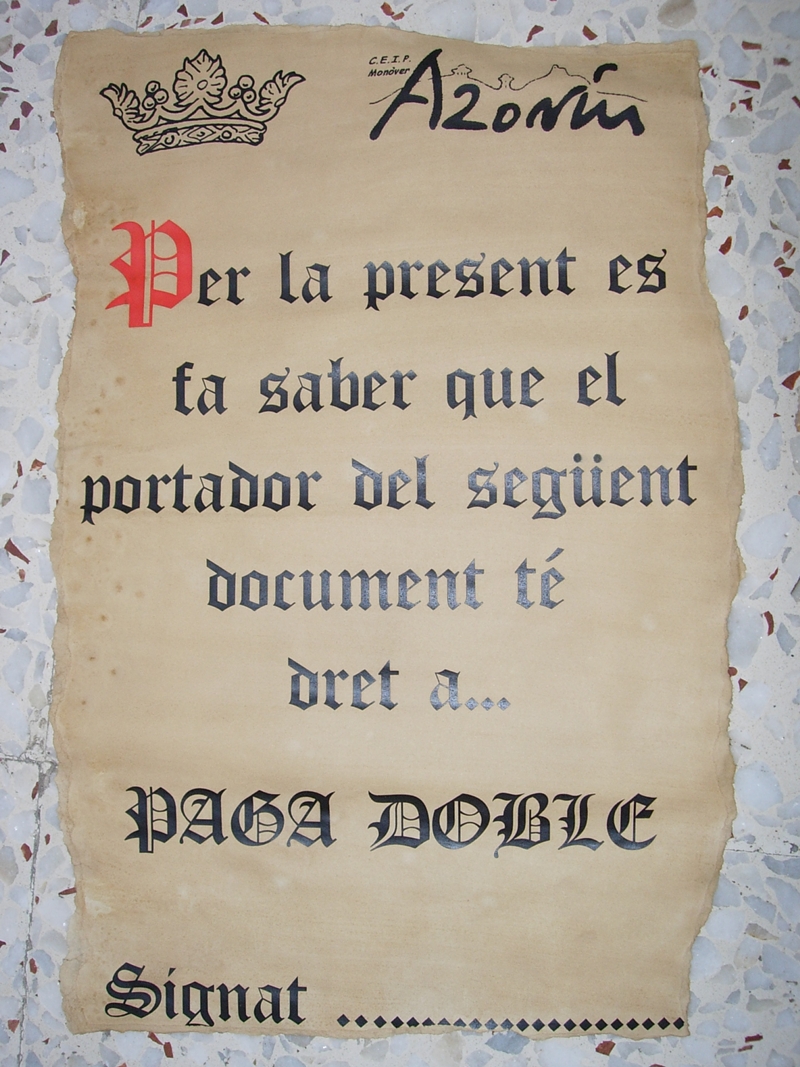 C.E.I.P.
Monòver
Azorín
Per la present es
fa saber que el
portador del següent
document té
dret a...
PAGA DOBLE
Signat ..............................